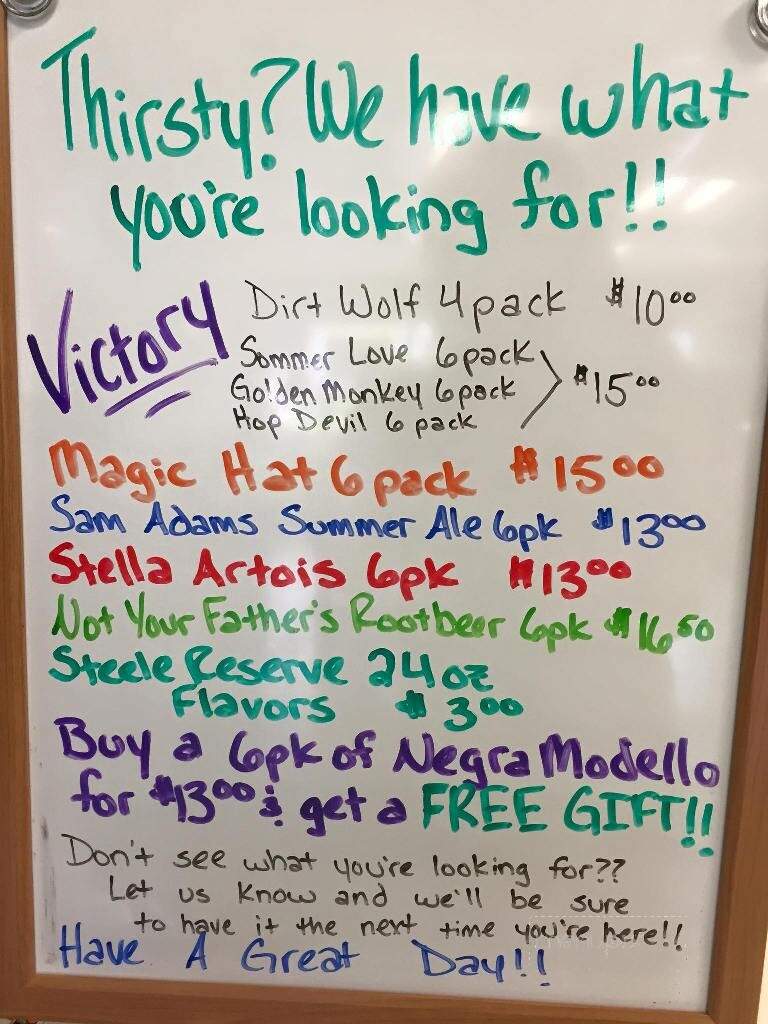 Thirsty? We have what
you're looking for!!
Victory
Dirt Wolf 4 pack $10.00
Sommer Love 6 pack
Golden Monkey 6 pack
Hop Devil 6 pack
$15.00
Magic Hat 6 pack $15.00
Sam Adams Summer Ale 6pk $13.00
Stella Artois 6pk $13.00
Not Your Father's Rootbeer 6pk $16.50
Steele Reserve 24 oz
Flavors $3.00
Buy a 6pk of Negra Modello
for $13.00 & get a FREE GIFT!!
Don't see what you're looking for??
Let us know and we'll be sure
to have it the next time you're here!!
Have A Great Day!!